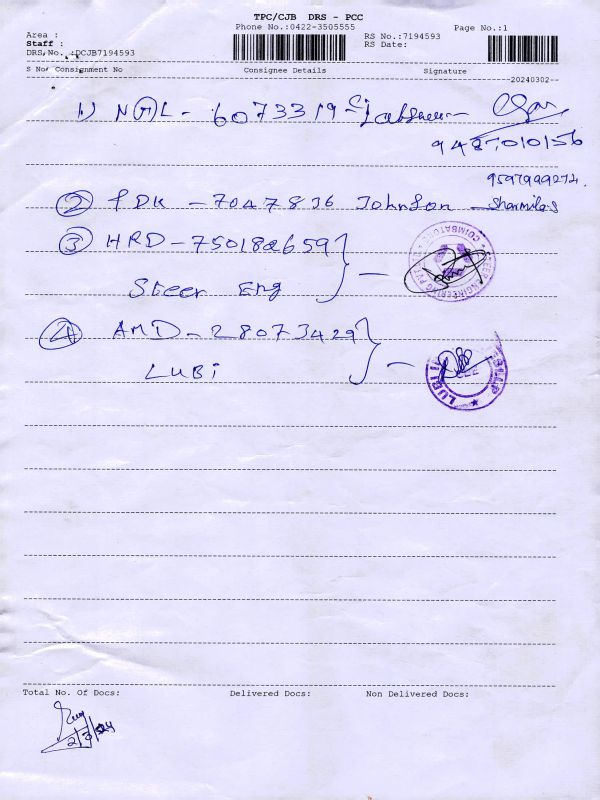 TPC/CJB DRS - PCC
Phone No.:0422-3505555
Page No.:1
Area :
RS No.:7194593
Staff :
RS Date:
DRS No. :DCJB7194593
S No Consignment No Consignee Details Signature
20240302
1) NGL - 6073319
9487010156
9597999274
2 PDK - 7047836 Johnson - Sharmila.s
3 HRD - 750182659
Steer Eng
COIMBATORE
STEER ENGINEERING PVT
4 AMD - 28073429
LUBI
LUBI
LLP
Total No. Of Docs: Delivered Docs: Non Delivered Docs:
2/3/24